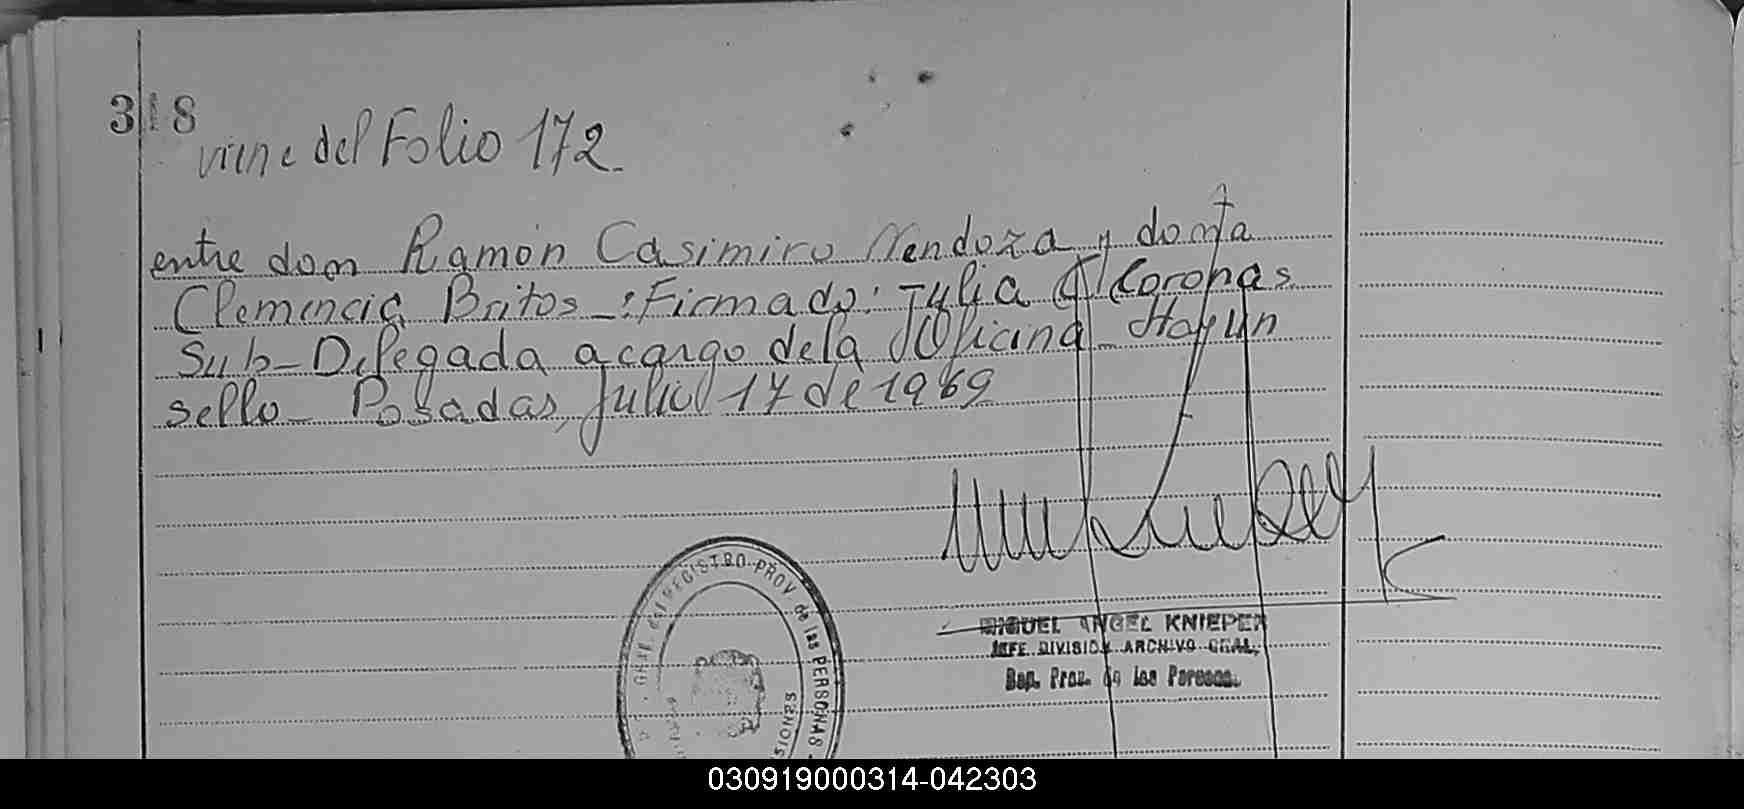 318
viene del Folio 172
entre don Ramón Casimiro Mendoza y doña
Clemencia Britos_:Firmado: Julia A Coronas
Sub-Delegada a cargo de la Oficina_ Hay un
sello_ Posadas, Julio 17 de 1969
GRAL del REGISTRO PROV de las PERSONAS
SIONES
MIGUEL ANGEL KNIEPER
JEFE DIVISION ARCHIVO GRAL,
Rep. Prov. de las Personas.
030919000314-042303